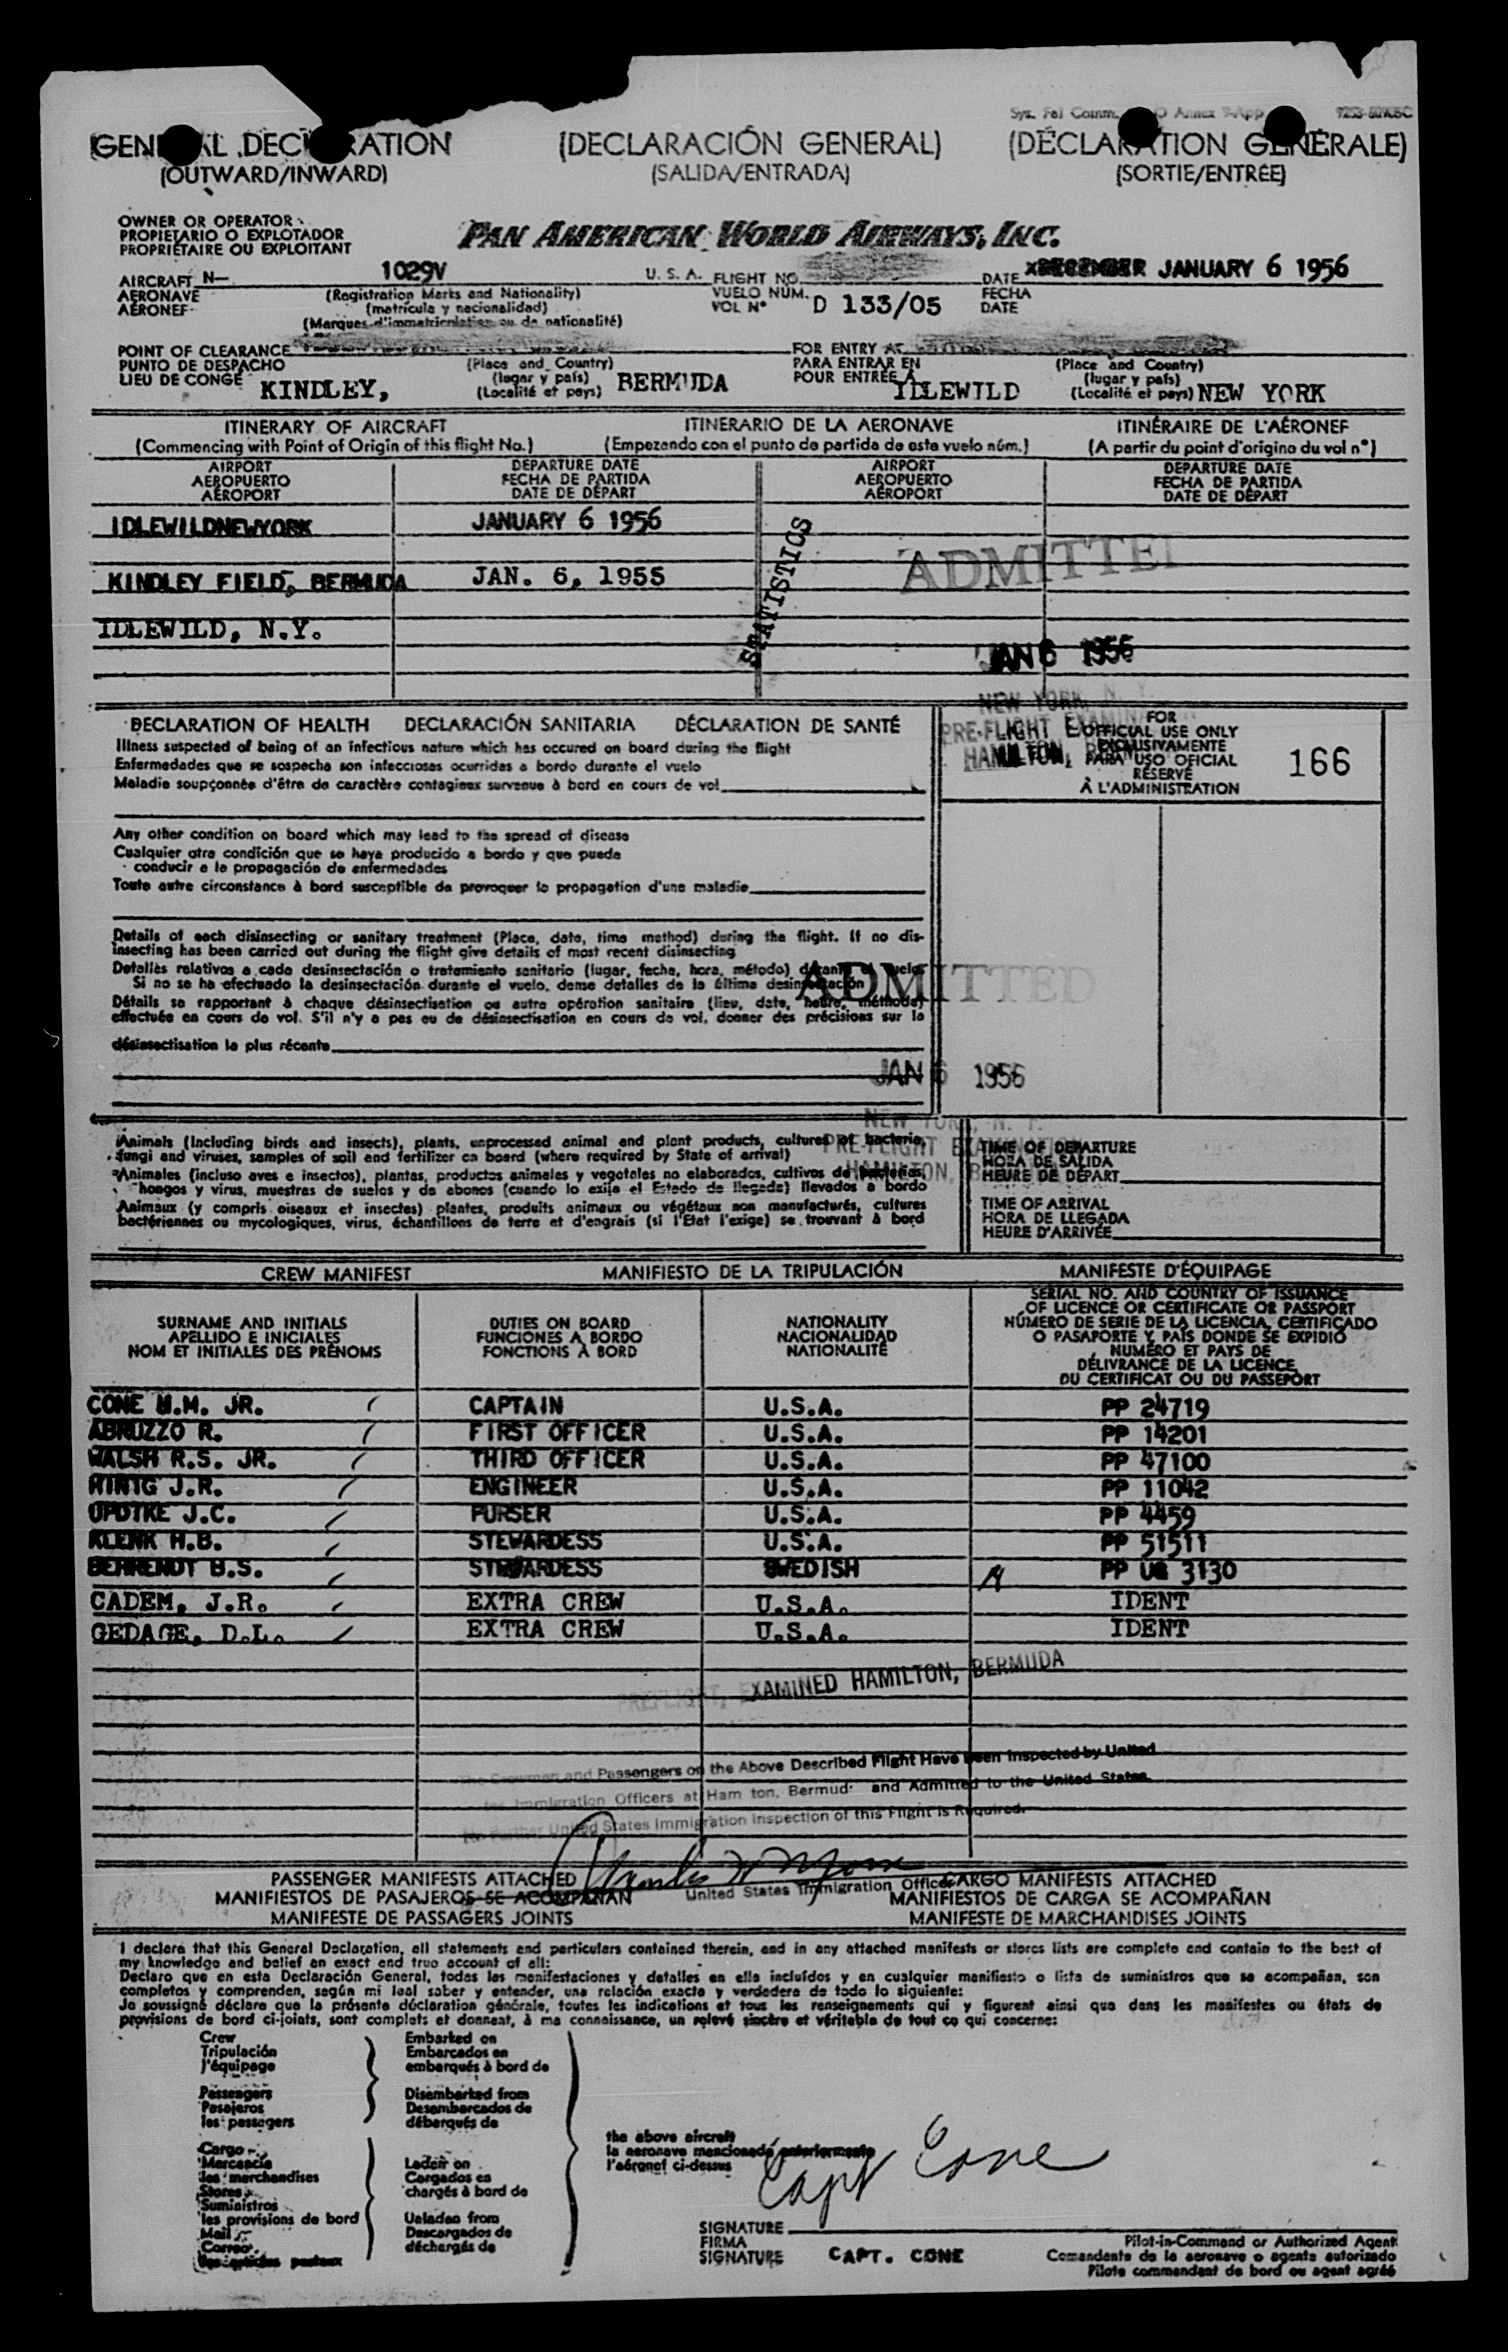 Annex 9-App
(DECLARACIÓN GENERAL)
(OUTWARD/INWARD) (SALIDA/ENTRADA) (SORTIE/ENTRÉE)
OWNER OR OPERATOR
PROPIETARIO O EXPLOTADOR
PROPRIÉTAIRE OU EXPLOITANT
PAN AMERICAN WORLD AIRWAYS, INC.
AIRCRAFT N— 1029V U. S. A. FLIGHT NO. DATE JANUARY 6 1956
AERONAVE (Registration Marks and Nationality) VUELO NÚM. FECHA
AÉRONEF (matrícula y nacionalidad) VOL N° D 133/05 DATE
(Marques d'immatriculation ou de nationalité)
POINT OF CLEARANCE FOR ENTRY AT
PUNTO DE DESPACHO (Place and Country) PARA ENTRAR EN (Place and Country)
LIEU DE CONGÉ KINDLEY, (lugar y país) BERMUDA POUR ENTRÉE À IDLEWILD (lugar y país)
(Localité et pays) (Localité et pays) NEW YORK
ITINERARY OF AIRCRAFT ITINERARIO DE LA AERONAVE ITINÉRAIRE DE L'AÉRONEF
(Commencing with Point of Origin of this flight No.) (Empezando con el punto de partida de este vuelo núm.) (A partir du point d'origine du vol n°)
AIRPORT DEPARTURE DATE AIRPORT DEPARTURE DATE
AEROPUERTO FECHA DE PARTIDA AEROPUERTO FECHA DE PARTIDA
AÉROPORT DATE DE DÉPART AÉROPORT DATE DE DÉPART
IDLEWILDNEWYORK JANUARY 6 1956
STATISTICS
ADMITTED
KINDLEY FIELD, BERMUDA JAN. 6, 1955
IDLEWILD, N.Y.
JAN 6 1956
NEW YORK, N. Y.
PRE-FLIGHT EXAMINATION
HAMILTON,
DECLARATION OF HEALTH DECLARACIÓN SANITARIA DÉCLARATION DE SANTÉ
FOR
OFFICIAL USE ONLY
EXCLUSIVAMENTE
PARA USO OFICIAL
RÉSERVÉ
À L'ADMINISTRATION
166
Illness suspected of being of an infectious nature which has occured on board during the flight
Enfermedades que se sospecha son infecciosas ocurridas a bordo durante el vuelo
Maladie soupçonnée d'être de caractère contagieux survenue à bord en cours de vol
Any other condition on board which may lead to the spread of disease
Cualquier otra condición que se haya producido a bordo y que pueda
conducir a la propagación de enfermedades
Toute autre circonstance à bord susceptible de provoquer la propagation d'une maladie
Details of each disinsecting or sanitary treatment (Place, date, time method) during the flight. If no dis-
insecting has been carried out during the flight give details of most recent disinsecting
Detalles relativos a cada desinsectación o tratamiento sanitario (lugar, fecha, hora, método) durante el vuelo
Si no se ha efectuado la desinsectación durante el vuelo, dense detalles de la última desinsectación
Détails se rapportant à chaque désinsectisation ou autre opération sanitaire (lieu, date, heure, méthode)
effectuée en cours de vol. S'il n'y a pas eu de désinsectisation en cours de vol, donner des précisions sur la
désinsectisation la plus récente
ADMITTED
JAN 6 1956
NEW YORK, N. Y.
PRE-FLIGHT EXAMINATION
HAMILTON,
Animals (Including birds and insects), plants, unprocessed animal and plant products, cultures of bacteria,
fungi and viruses, samples of soil and fertilizer on board (where required by State of arrival)
Animales (incluso aves e insectos), plantas, productos animales y vegetales no elaborados, cultivos de bacterias,
hongos y virus, muestras de suelos y de abonos (cuando lo exija el Estado de llegada) llevados a bordo
Animaux (y compris oiseaux et insectes) plantes, produits animaux ou végétaux non manufacturés, cultures
bactériennes ou mycologiques, virus, échantillons de terre et d'engrais (si l'Etat l'exige) se trouvant à bord
TIME OF DEPARTURE
HORA DE SALIDA
HEURE DE DÉPART
TIME OF ARRIVAL
HORA DE LLEGADA
HEURE D'ARRIVÉE
CREW MANIFEST MANIFIESTO DE LA TRIPULACIÓN MANIFESTE D'ÉQUIPAGE
SURNAME AND INITIALS
APELLIDO E INICIALES
NOM ET INITIALES DES PRÉNOMS
DUTIES ON BOARD
FUNCIONES A BORDO
FONCTIONS À BORD
NATIONALITY
NACIONALIDAD
NATIONALITÉ
SERIAL NO. AND COUNTRY OF ISSUANCE
OF LICENCE OR CERTIFICATE OR PASSPORT
NÚMERO DE SERIE DE LA LICENCIA, CERTIFICADO
O PASAPORTE Y PAÍS DONDE SE EXPIDIÓ
NUMÉRO ET PAYS DE
DÉLIVRANCE DE LA LICENCE
DU CERTIFICAT OU DU PASSEPORT
CONE JR. CAPTAIN U.S.A. PP 24719
ABRUZZO R. FIRST OFFICER U.S.A. PP 14201
WALSH R.S. JR. THIRD OFFICER U.S.A. PP 47100
J.R. ENGINEER U.S.A. PP 11042
UPDTKE J.C. PURSER U.S.A. PP 4459
KLENK H.B. STEWARDESS U.S.A. PP 51511
BEHRENDT B.S. STEWARDESS SWEDISH PP 3130
CADEM, J.R. EXTRA CREW U.S.A. IDENT
GEDAGE, D.L. EXTRA CREW U.S.A. IDENT
PREFLIGHT, EXAMINED HAMILTON, BERMUDA
The Crewmen and Passengers on the Above Described Flight Have Been Inspected by United
Immigration Officers at Ham ton, Bermud and Admitted to the United States.
No Further United States Immigration Inspection of this Flight is Required.
United States Immigration Officer
PASSENGER MANIFESTS ATTACHED CARGO MANIFESTS ATTACHED
MANIFIESTOS DE PASAJEROS SE ACOMPAÑAN MANIFIESTOS DE CARGA SE ACOMPAÑAN
MANIFESTE DE PASSAGERS JOINTS MANIFESTE DE MARCHANDISES JOINTS
I declare that this General Declaration, all statements and particulars contained therein, and in any attached manifests or stores lists are complete and contain to the best of
my knowledge and belief an exact and true account of all:
Declaro que en esta Declaración General, todas las manifestaciones y detalles en ella incluídos y en cualquier manifiesto o lista de suministros que se acompañan, son
completos y comprenden, según mi leal saber y entender, una relación exacta y verdadera de todo lo siguiente:
Je soussigné déclare que la présente déclaration générale, toutes les indications et tous les renseignements qui y figurent ainsi que dans les manifestes ou états de
provisions de bord ci-joints, sont complets et donnent, à ma connaissance, un relevé sincère et véritable de tout ce qui concerne:
Crew Embarked on
Tripulación Embarcados en
l'équipage embarqués à bord de
Passengers Disembarked from
Pasajeros Desembarcados de
les passagers débarqués de
Cargo
Mercancía Laden on
les marchandises Cargados en
Stores chargés à bord de
Suministros
les provisions de bord Unladen from
Mail Descargados de
Correo déchargés de
les articles postaux
the above aircraft
la aeronave mencionada anteriormente
l'aéronef ci-dessus
Capt Cone
SIGNATURE
FIRMA
SIGNATURE CAPT. CONE
Pilot-in-Command or Authorized Agent
Comandante de la aeronave o agente autorizado
Pilote commandant de bord ou agent agréé